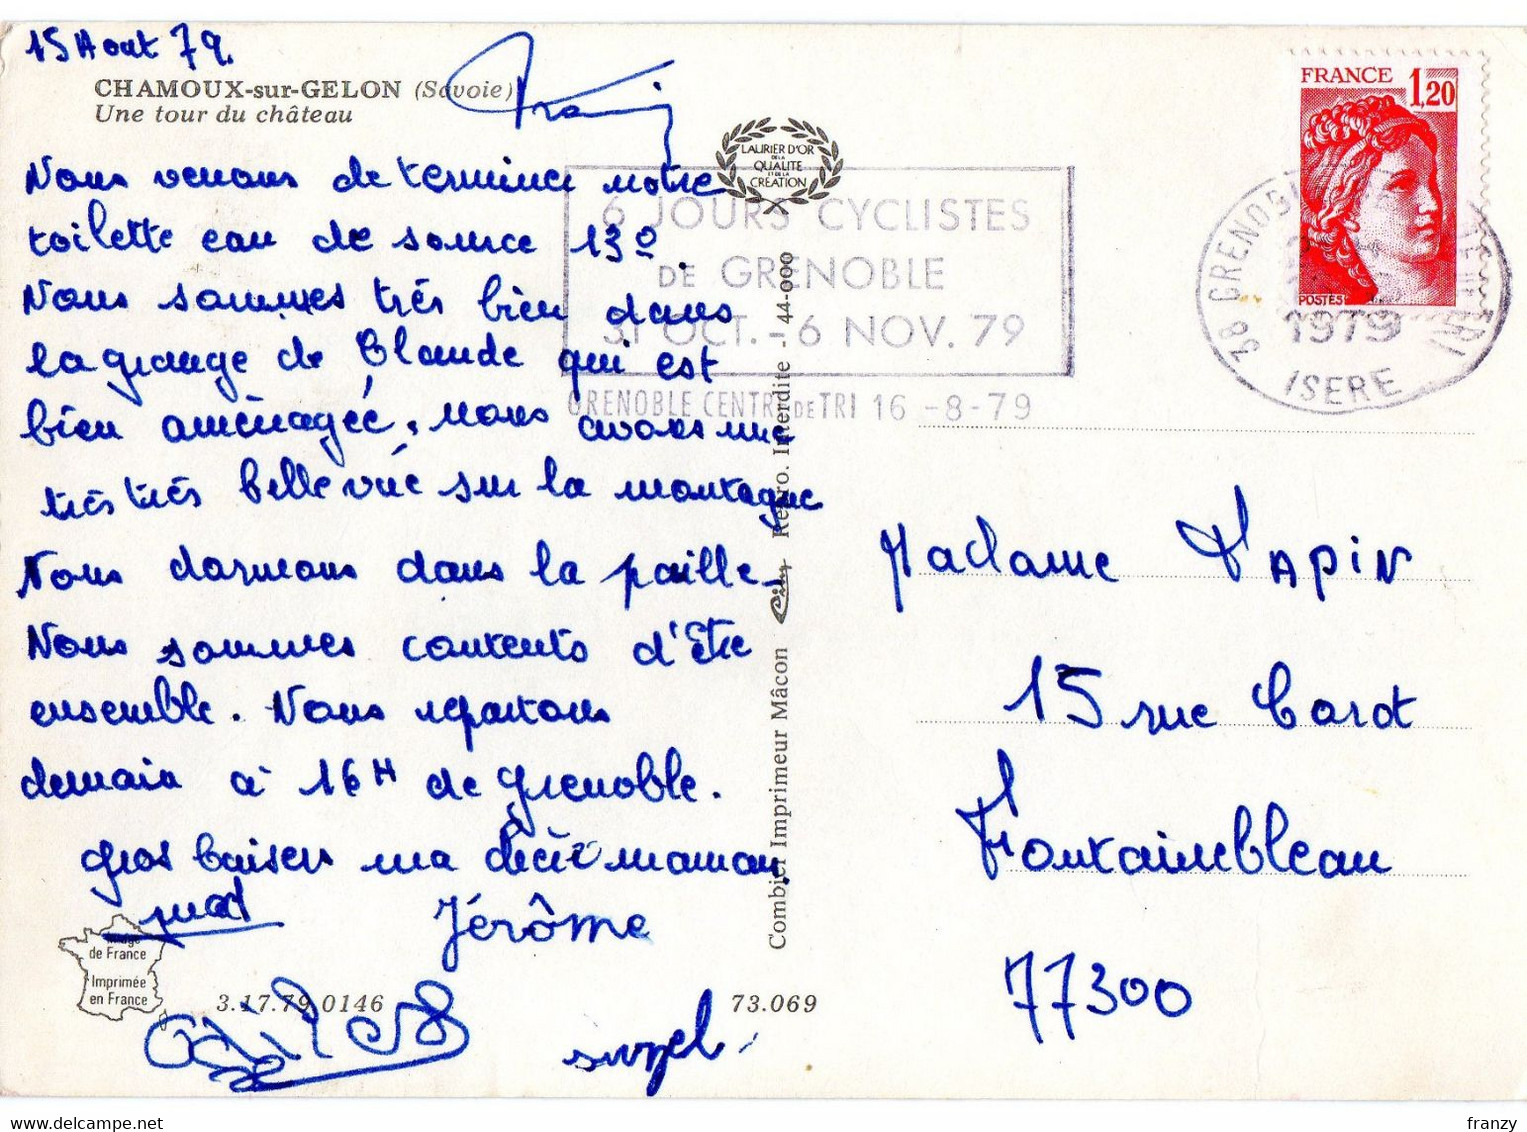 15 Aout 79.
CHAMOUX-sur-GELON (Savoie)
Une tour du château
Nous venons de terminer notre
toilette eau de source 13º.
Nous sommes très bien dans
la grange de Claude qui est
bien aménagée, nous avons une
très très belle vue sur la montagne
Nous dormons dans la paille.
Nous sommes contents d'être
ensemble. Nous repartons
demain à 16H de grenoble.
gros baisers ma maman.
Jérôme
Image
de France
Imprimée
en France
3.17.79.0146
73.069
LAURIER D'OR
DE LA
QUALITE
ET DE LA
CREATION
Combier Imprimeur Mâcon
Repro. Interdite - 44-000
6 JOURS CYCLISTES
DE GRENOBLE
31 OCT. - 6 NOV. 79
GRENOBLE CENTRE DE TRI 16 -8-79
FRANCE 1,20
POSTES
38 GRENOBLE
1979
ISERE
Madame PAPIN
15 rue Corot
Fontainebleau
77300
franzy